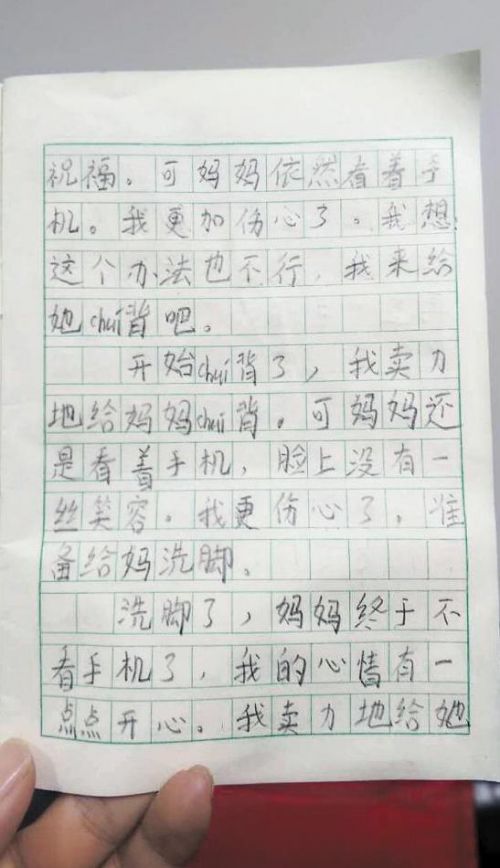 祝福。可妈妈依然看着手
机。我更加伤心了。我想:
这个办法也不行，我来给
她chuí背吧。
开始chuí背了，我卖力
地给妈妈chuí背。可妈妈还
是看着手机，脸上没有一
丝笑容。我更伤心了，准
备给妈洗脚。
洗脚了，妈妈终于不
看手机了，我的心情有一
点点开心。我卖力地给她